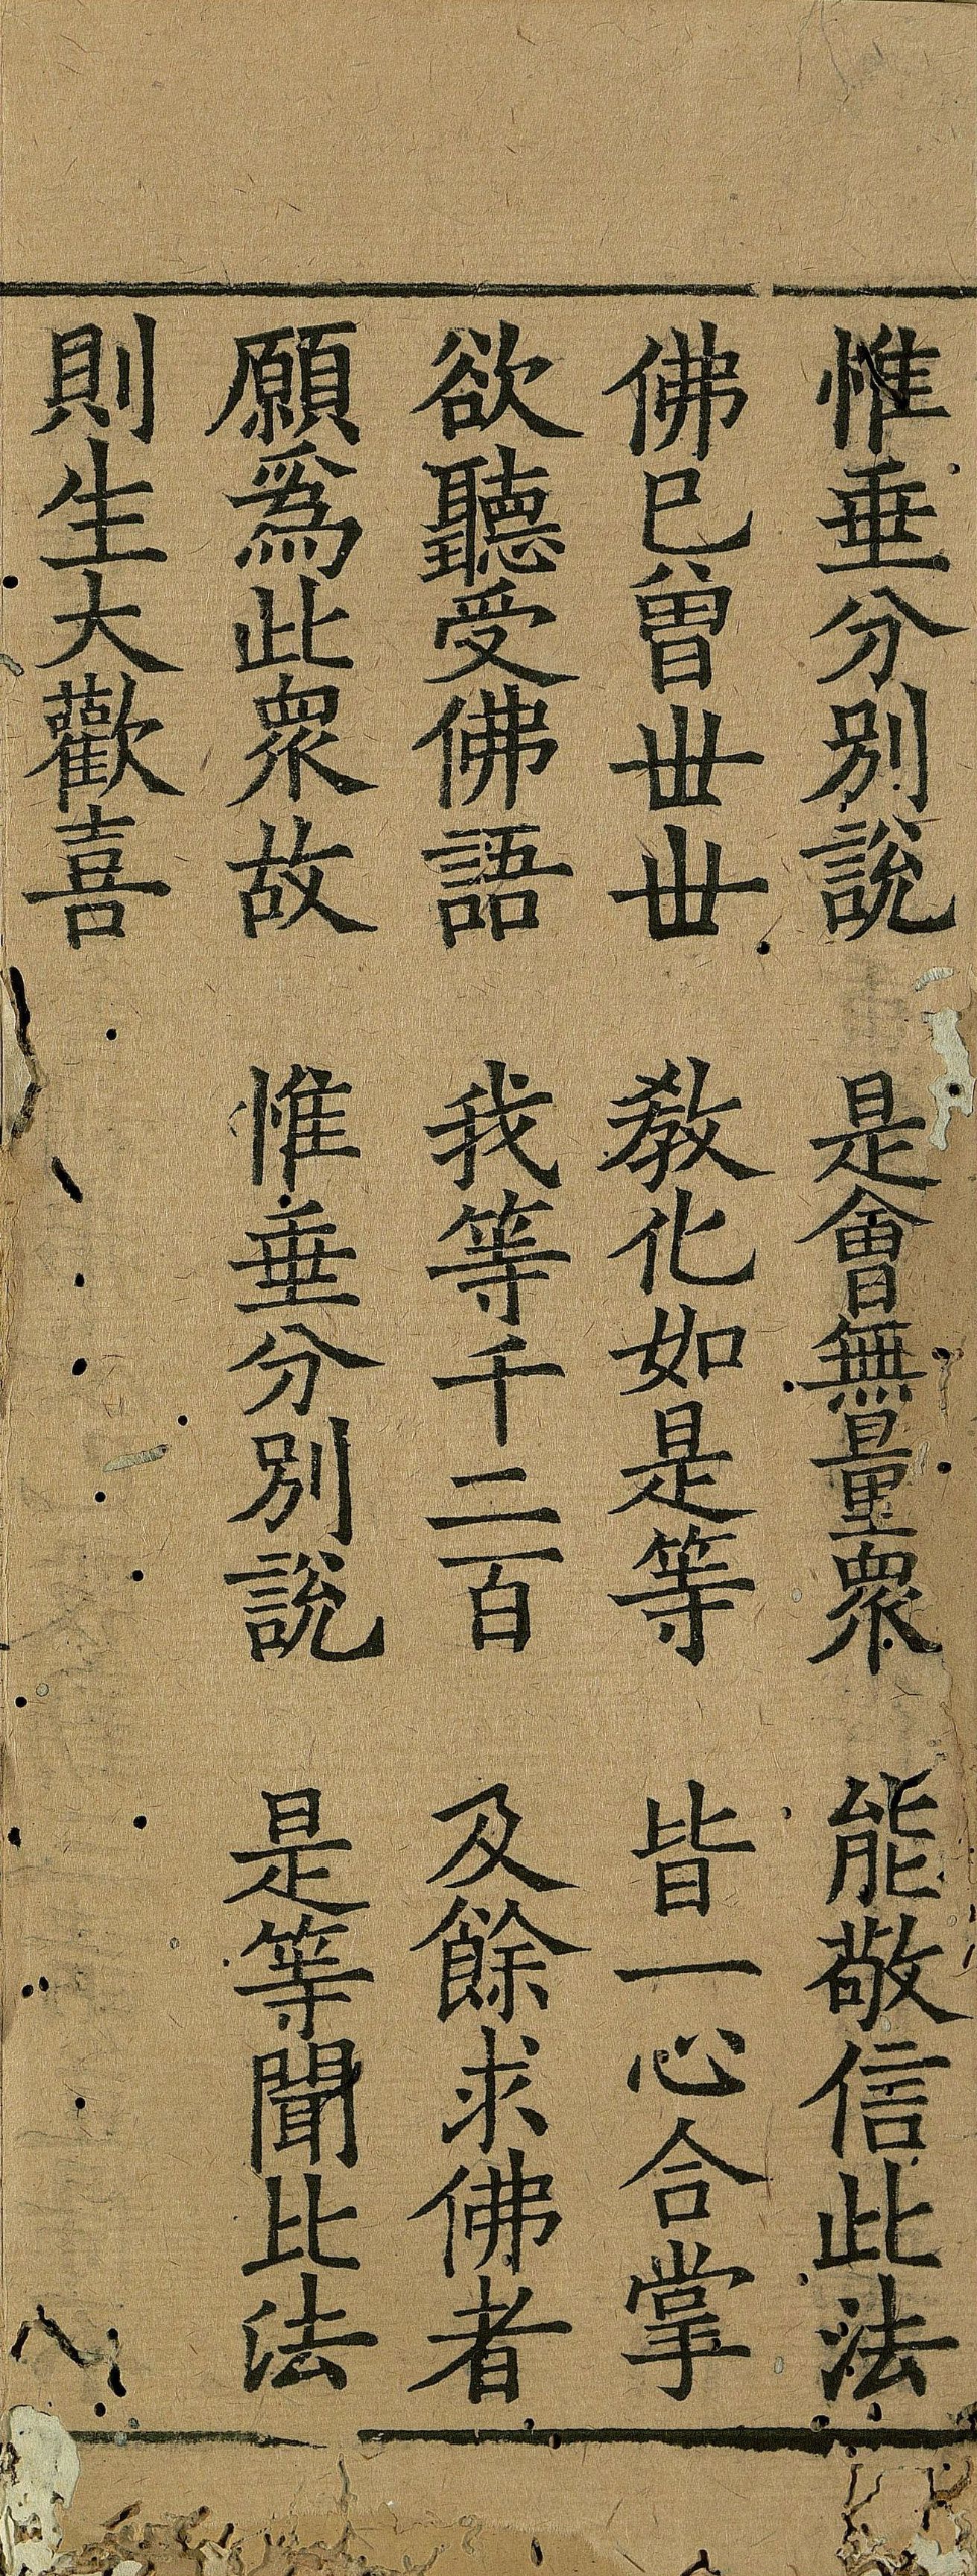 惟垂分別說　是會無量衆　能敬信此法
佛已曾丗丗　教化如是等　皆一心合掌
欲聽受佛語　我等千二百　及餘求佛者
願爲此衆故　惟垂分別說　是等聞此法
則生大歡喜